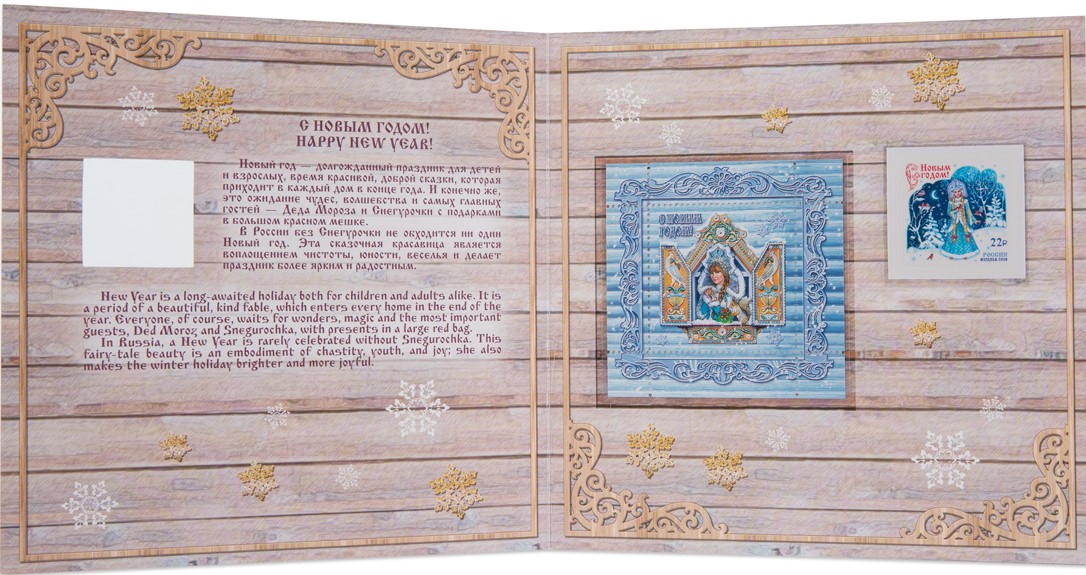 С НОВЫМ ГОДОМ!
HAPPY NEW YEAR!
Новый год — долгожданный праздник для детей
и взрослых, время красивой, доброй сказки, которая
приходит в каждый дом в конце года. И конечно же,
это ожидание чудес, волшебства и самых главных
гостей — Деда Мороза и Снегурочки с подарками
в большом красном мешке.
В России без Снегурочки не обходится ни один
Новый год. Эта сказочная красавица является
воплощением чистоты, юности, веселья и делает
праздник более ярким и радостным.
New Year is a long-awaited holiday both for children and adults alike. It is
a period of a beautiful, kind fable, which enters every home in the end of the
year. Everyone, of course, waits for wonders, magic and the most important
guests, Ded Moroz and Snegurochka, with presents in a large red bag.
In Russia, a New Year is rarely celebrated without Snegurochka. This
fairy-tale beauty is an embodiment of chastity, youth, and joy; she also
makes the winter holiday brighter and more joyful.
С НОВЫМ
ГОДОМ!
С Новым
годом!
22₽
РОССИЯ